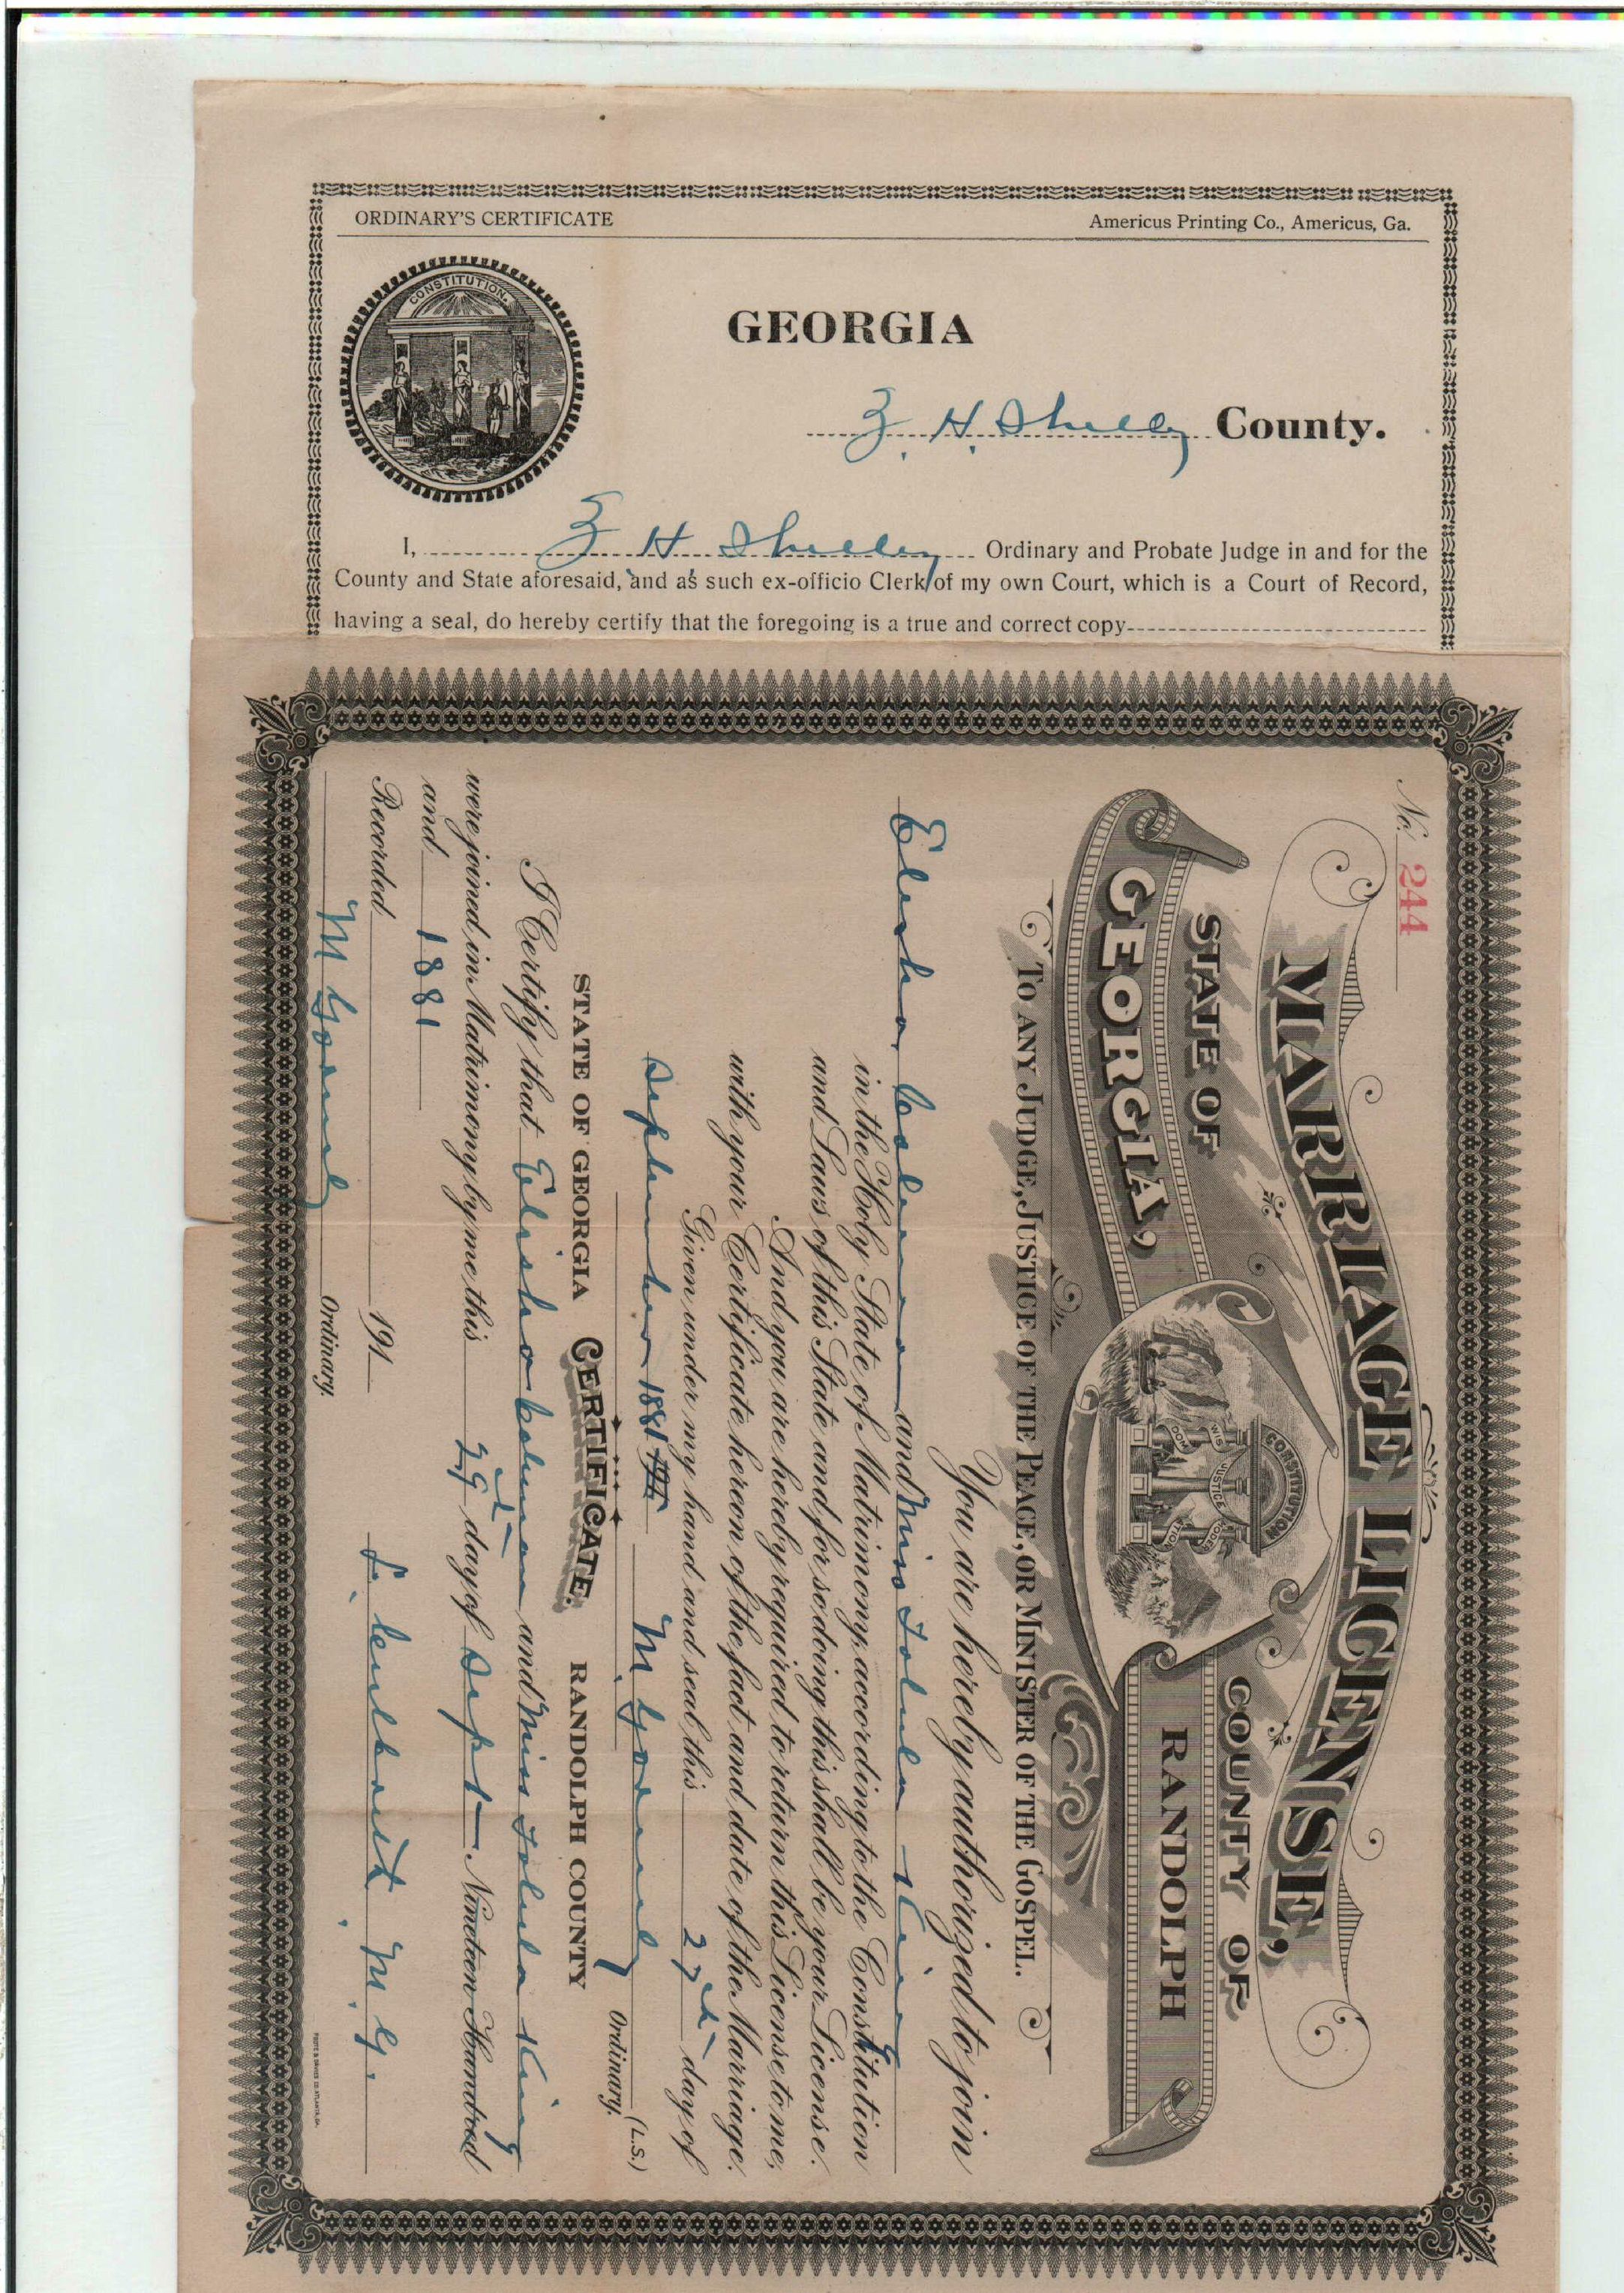 ORDINARY'S CERTIFICATE
Americus Printing Co., Americus, Ga.
CONSTITUTION.
GEORGIA
Z. H. Shelly County.
I, Z H Shelley Ordinary and Probate Judge in and for the
County and State aforesaid, and as such ex-officio Clerk of my own Court, which is a Court of Record,
having a seal, do hereby certify that the foregoing is a true and correct copy
No. 244
MARRIAGE LICENSE,
STATE OF
GEORGIA,
COUNTY OF
RANDOLPH
CONSTITUTION
WIS DOM JUSTICE MODER ATION
To any Judge, Justice of the Peace, or Minister of the Gospel.
You are hereby authorized to join
Elisha Coleman and Miss Tolula King
in the Holy State of Matrimony, according to the Constitution
and Laws of this State and for so doing this shall be your License.
And you are hereby required to return this License to me,
with your Certificate hereon of the fact and date of the Marriage.
Given under my hand and seal, this 27th day of
September 1881
M. Gormly (L.S.)
Ordinary.
STATE OF GEORGIA CERTIFICATE. RANDOLPH COUNTY
I Certify that Elisha Coleman and Miss Tolula King
were joined in Matrimony by me this 29th day of Sept Nineteen Hundred
and 1881
Recorded 191
M. G.
M Gormly
Ordinary.